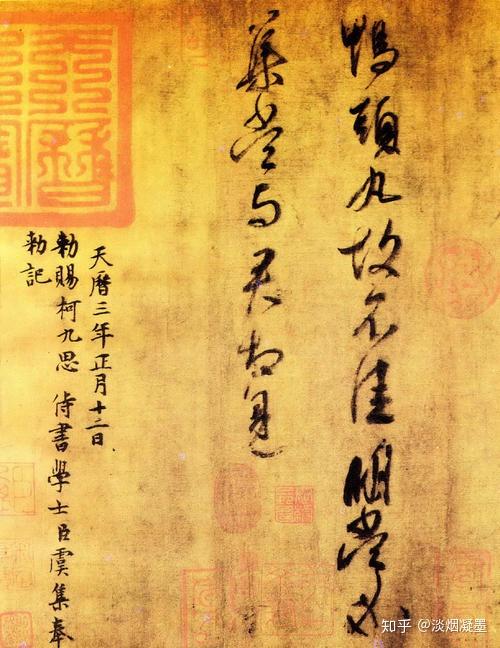 鴨頭丸故不佳明當必
集當与君相見
天曆
天曆三年正月十二日
勑賜柯九思侍書學士臣虞集奉
勑記
知乎 @淡烟凝墨